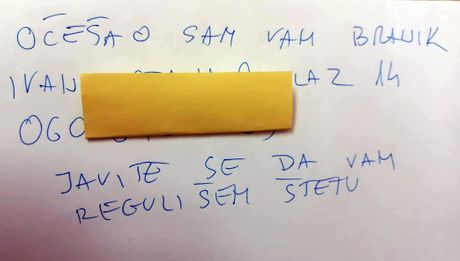 OČEŠAO SAM VAM BRANIK
IVAN 14
JAVITE SE DA VAM
REGULIŠEM ŠTETU